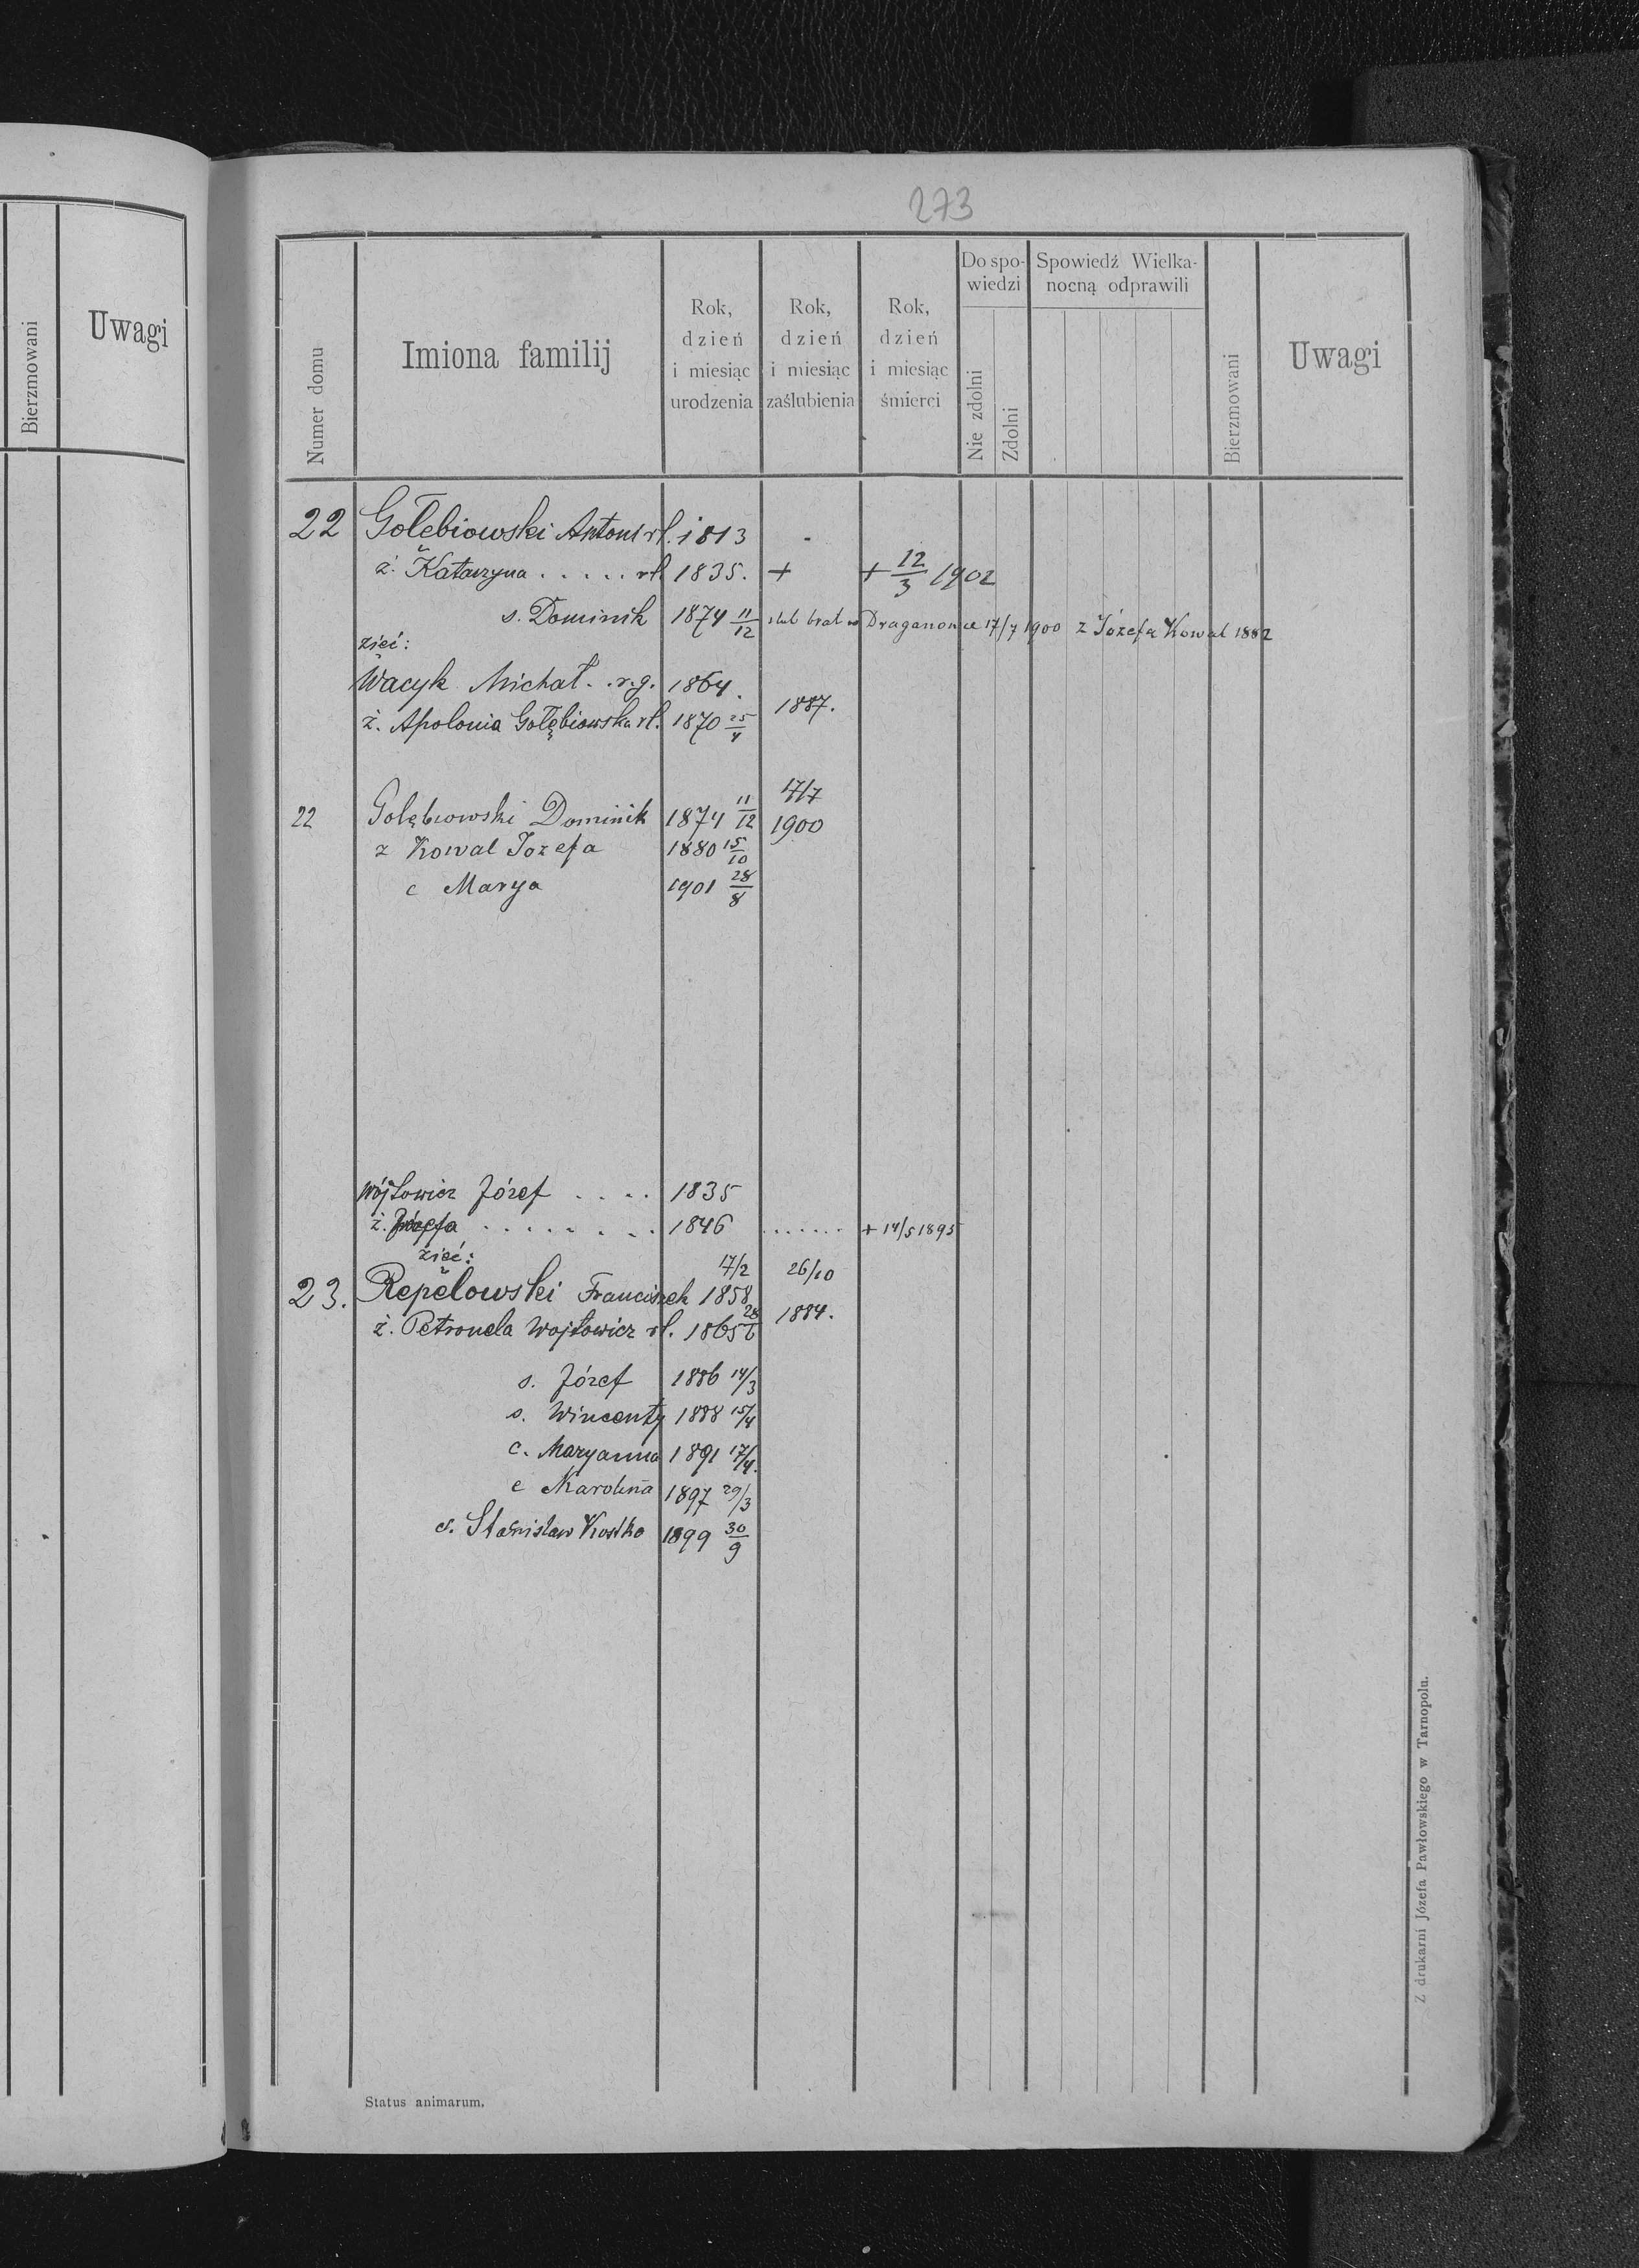 273
Bierzmowani
Uwagi
Numer domu
Imiona familij
Rok, dzień i miesiąc urodzenia
Rok, dzień i miesiąc zaślubienia
Rok, dzień i miesiąc śmierci
Do spowiedzi
Nie zdolni
Zdolni
Spowiedź Wielkanocną odprawili
Bierzmowani
Uwagi
22 Gołębiowski Antoni rł. 1813
ż. Katarzyna . . . . . rł 1835. + + 12/3 1902
s. Dominik 1874 11/12 slub brał w Draganowce 17/7 1900 z Józefą Kowal 1882
zięć:
Wacyk Michał . . r.g. 1864.
ż. Apolonia Gołębiowska rł. 1870 25/4 1887.
22 Golębiowski Dominik 1874 11/12 17/7 1900
z Kowal Jozefa 1880 15/10
c Marya 1901 28/8
Wójtowicz Józef . . . . 1835
ż. . . . . . . . . 1846 . . . . . . + 14/5 1895
zięć:
23. Repelowski Franciszek 1858 17/2 26/10 1884.
ż. Petronela Wojtowicz rł. 1865 28/6
s. Józef 1886 14/3
s. Wincenty 1888 15/4
c. Maryanna 1891 17/4.
c Karolina 1897 29/3
s. Stanisław Kostka 1899 30/9
Status animarum.
Z drukarni Józefa Pawłowskiego w Tarnopolu.